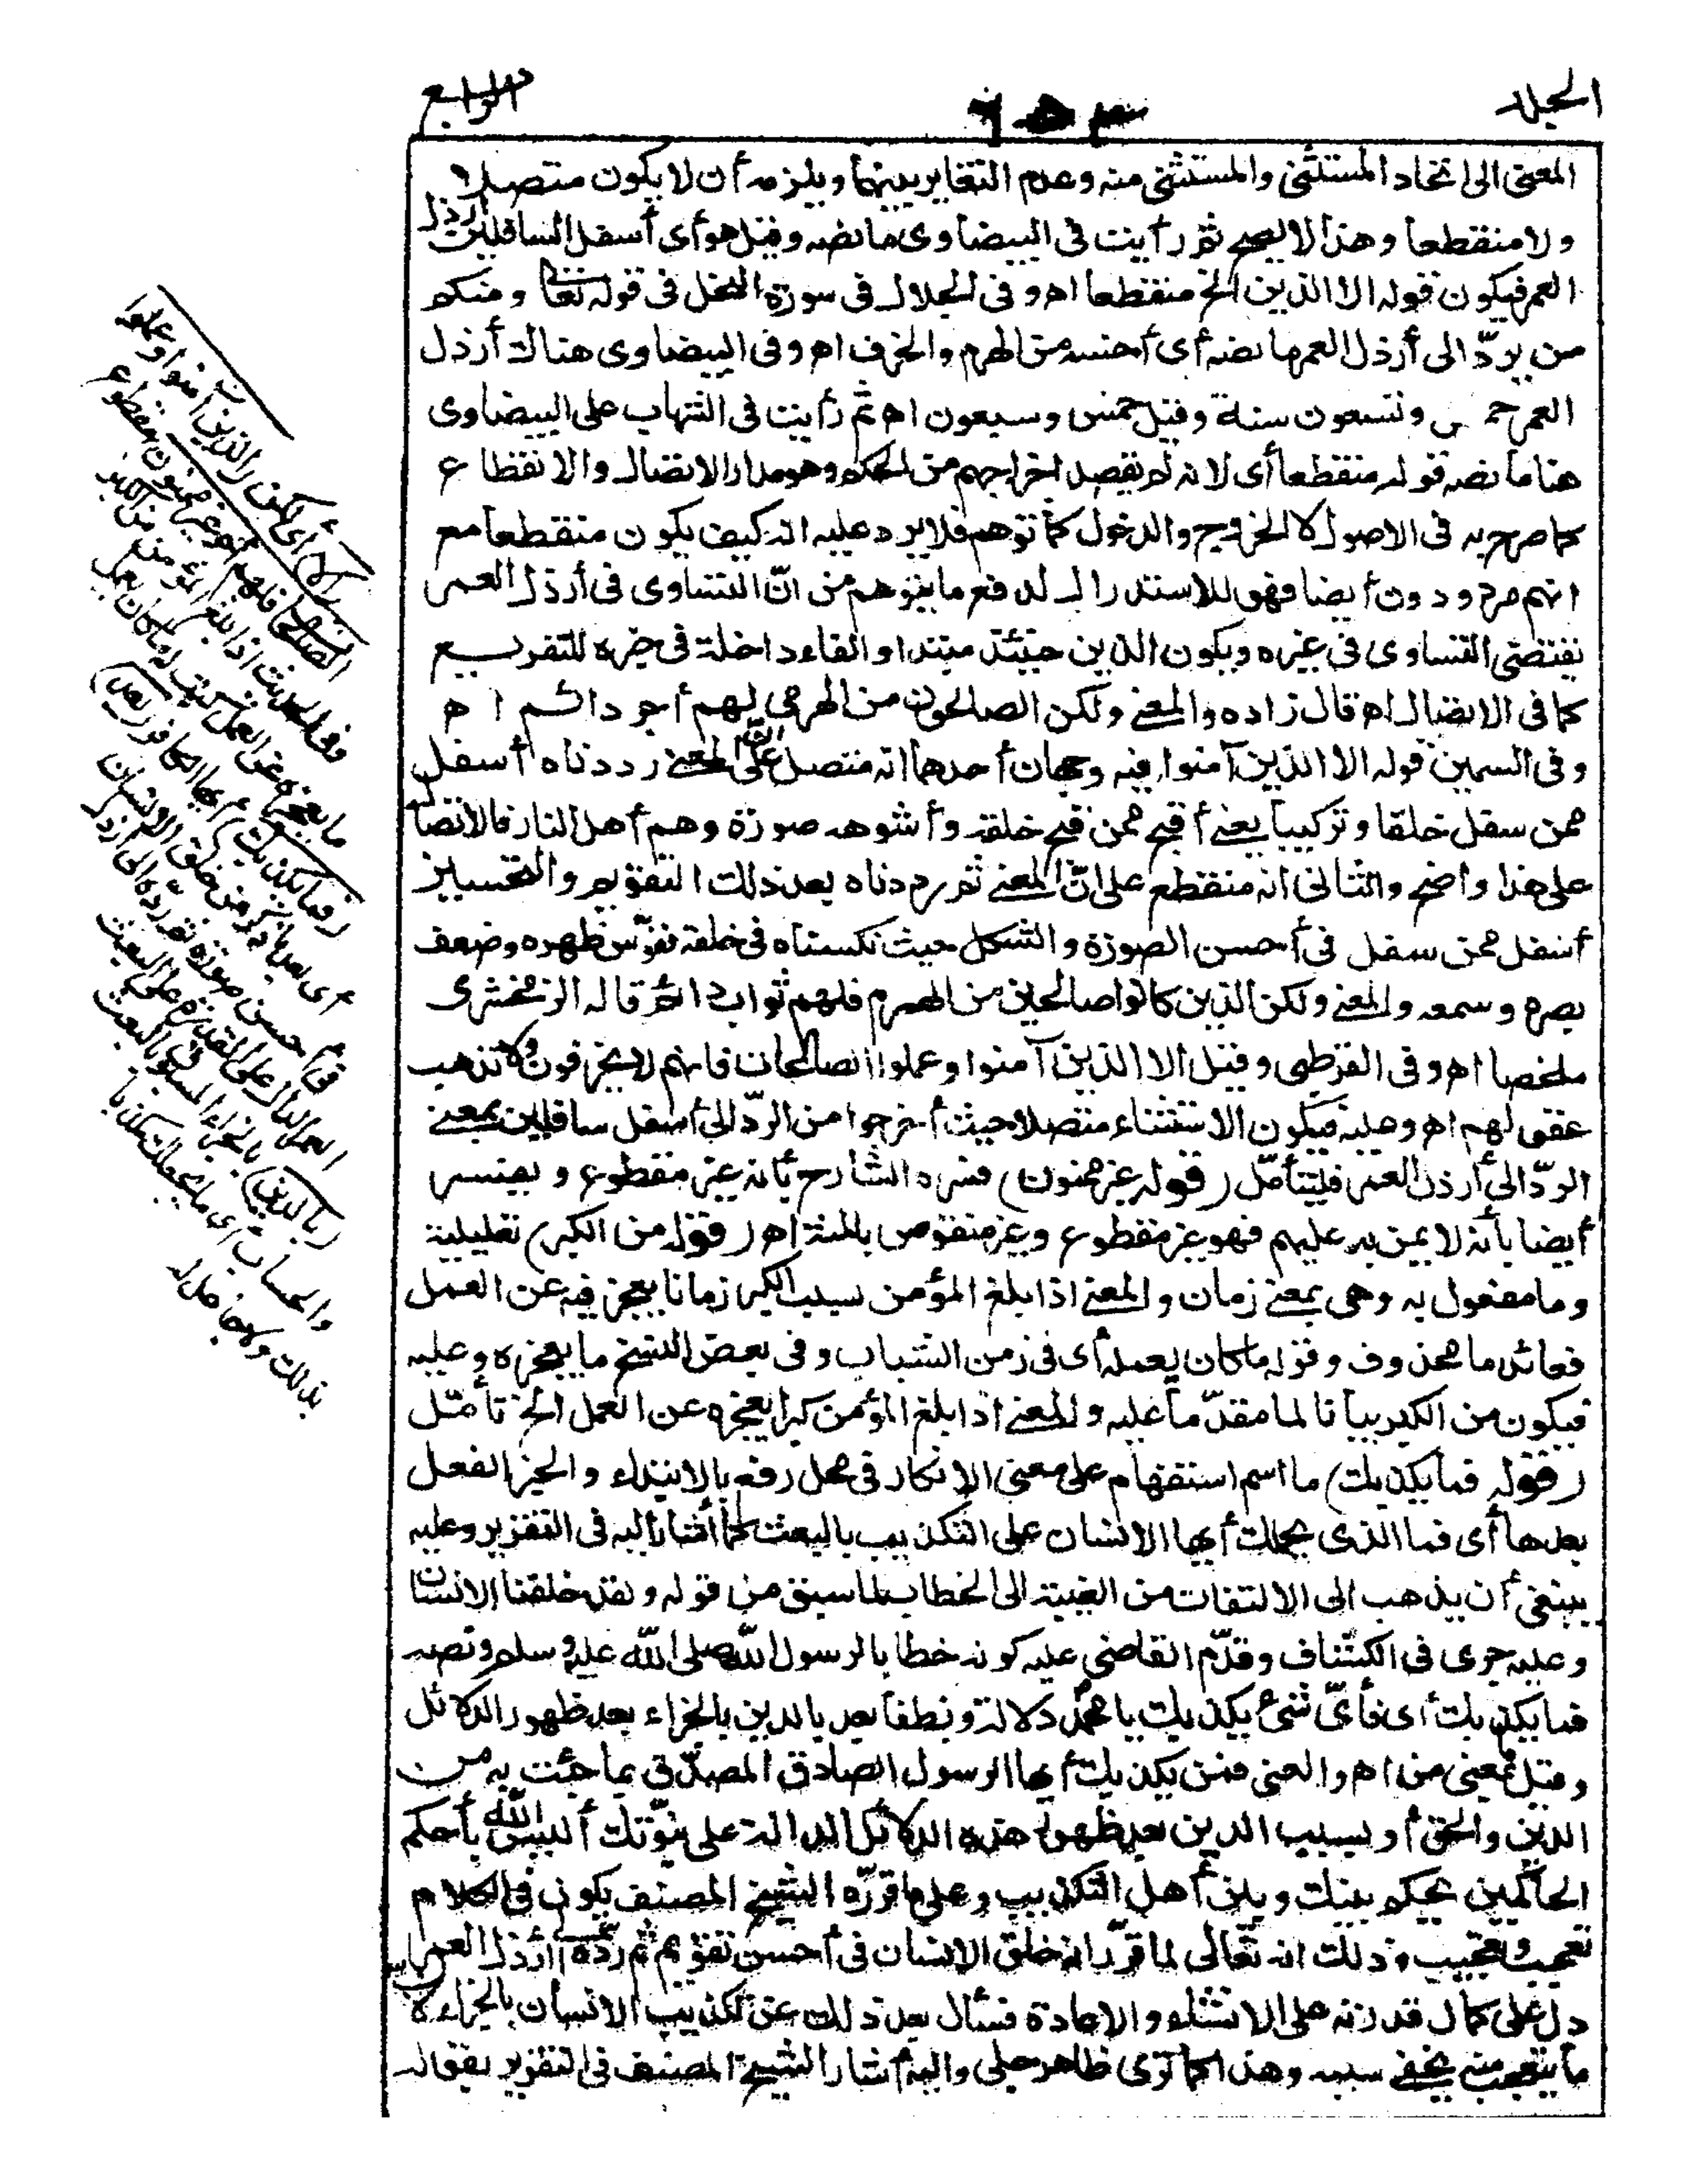 الجلد
٥٦٣
الرابع
المعنى الى اتحاد المستثنى والمستثنى منه وعدم التغاير بينهما ويلزمه أن لا يكون متصلا
ولا منقطعا وهذا لا يصح ثم رأيت فى البيضاوى ما نصه وقيل هو أى أسفل السافلين أرذل
العمر فيكون قوله الا الذين الخ منقطعا اه وفى الجلال فى سورة النحل فى قوله تعالى ومنكم
من يردّ الى أرذل العمر ما نصه أى أخسه من الهرم والخرف اه وفى البيضاوى هناك أرذل
العمر خمس وتسعون سنة وقيل خمس وسبعون اه ثم رأيت فى الشهاب على البيضاوى
هنا ما نصه قوله منقطعا أى لانه لم يقصد اخراجهم من الحكم وهو مدار الاتصال والانقطاع
كما صرح به فى الاصول لا الخروج والدخول كما توهم فلا يرد عليه انه كيف يكون منقطعا مع
انهم مردودون أيضا فهو للاستدراك لدفع ما يتوهم من انّ التساوى فى أرذل العمر
يقتضى التساوى فى غيره ويكون الذين حينئذ مبتدا والفاء داخلة فى خبره للتفريع
كما فى الاتصال اه قال زاده والمعنى ولكن الصالحون من الهرمى لهم أجر دائم اه
وفى السمين قوله الا الذين آمنوا فيه وجهان أحدهما انه متصل على انّ المعنى رددناه أسفل
ممن سفل خلقا وتركيبا يعنى أقبح ممن قبح خلقه وأشوهه صورة وهم أهل النار فالاتصال
على هذا واضح والثانى انه منقطع على انّ المعنى ثم رددناه بعد ذلك التقويم والتحسين
أسفل ممن سفل فى أحسن الصورة والشكل حيث نكسناه فى خلقه فقوّس ظهره وضعف
بصره وسمعه والمعنى ولكن الذين كانوا صالحين من الهرم فلهم ثواب دائم قاله الزمخشرى
ملخصا اه وفى القرطبى وقيل الا الذين آمنوا وعملوا الصالحات فانهم لا يخرفون ولا تذهب
عقولهم اه وعليه فيكون الاستثناء متصلا حيث أخرجوا من الردّ الى أسفل سافلين بمعنى
الردّ الى أرذل العمر فليتأمّل (قوله غير ممنون) فسره الشارح بأنه غير مقطوع ويفسر
أيضا بأنه لا يمن به عليهم فهو غير مقطوع وغير منقوص بالمنة اه (قوله من الكبر) تعليلية
وما مفعول به وهى بمعنى زمان والمعنى اذا بلغ المؤمن بسبب الكبر زمانا يعجز فيه عن العمل
فعائد ما محذوف وقوله ما كان يعمله أى فى زمن الشباب وفى بعض النسخ ما يعجزه وعليه
فيكون من الكبر بيانا لما مقدّما عليه والمعنى اذا بلغ المؤمن كبرا يعجزه عن العمل الخ تأمّل
(قوله فما يكذبك) ما اسم استفهام على معنى الانكار فى محل رفع بالابتداء والخبر الفعل
بعدها أى فما الذى يحملك أيها الانسان على التكذيب بالبعث كما أشار اليه فى التقرير وعليه
ينبغى أن يذهب الى الالتفات من الغيبة الى الخطاب لما سبق من قوله ولقد خلقنا الانسان
وعليه جرى فى الكشاف وقدّم القاضى عليه كونه خطابا لرسول الله صلى الله عليه وسلم ونصه
فما يكذبك أى فأىّ شئ يكذبك يا محمد دلالة ونطقا بعد بالدين بالجزاء بعد ظهور الدلائل
وقيل ما بمعنى من اه والمعنى فمن يكذبك أيها الرسول الصادق المصدّق بما جئت به من
الدين والحق أو بسبب الدين بعد ظهور هذه الدلائل الدالة على نبوّتك أليس الله بأحكم
الحاكمين يحكم بينك وبين أهل التكذيب وعلى ما قرّره الشيخ المصنف يكون فى الكلام
تعجب وتعجيب وذلك انه تعالى لما قرّر انه خلق الانسان فى أحسن تقويم ثم ردّه الى أرذل العمر
دل على كمال قدرته على الانشاء والاعادة فسأل بعد ذلك عن تكذيب الانسان بالجزاء لان
ما يتعجب منه يخفى سببه وهذا كما ترى ظاهر جلى واليه أشار الشيخ المصنف فى التقرير بقوله
(الا) أى لكن (الذين آمنوا وعملوا
الصالحات فلهم أجر غير ممنون) مقطوع
وفى الحديث اذا بلغ المؤمن من الكبر
ما يعجزه عن العمل كتب له ما كان يعمل
(فما يكذبك) أيها الكافر (بعد)
أى بعد ما ذكر من خلق الانسان
فى أحسن صورة ثم ردّه الى أرذل
العمر الدال على القدرة على البعث
(بالدين) بالجزاء المسبوق بالبعث
والحساب أى ما يجعلك مكذبا
بذلك ولا جاعل له